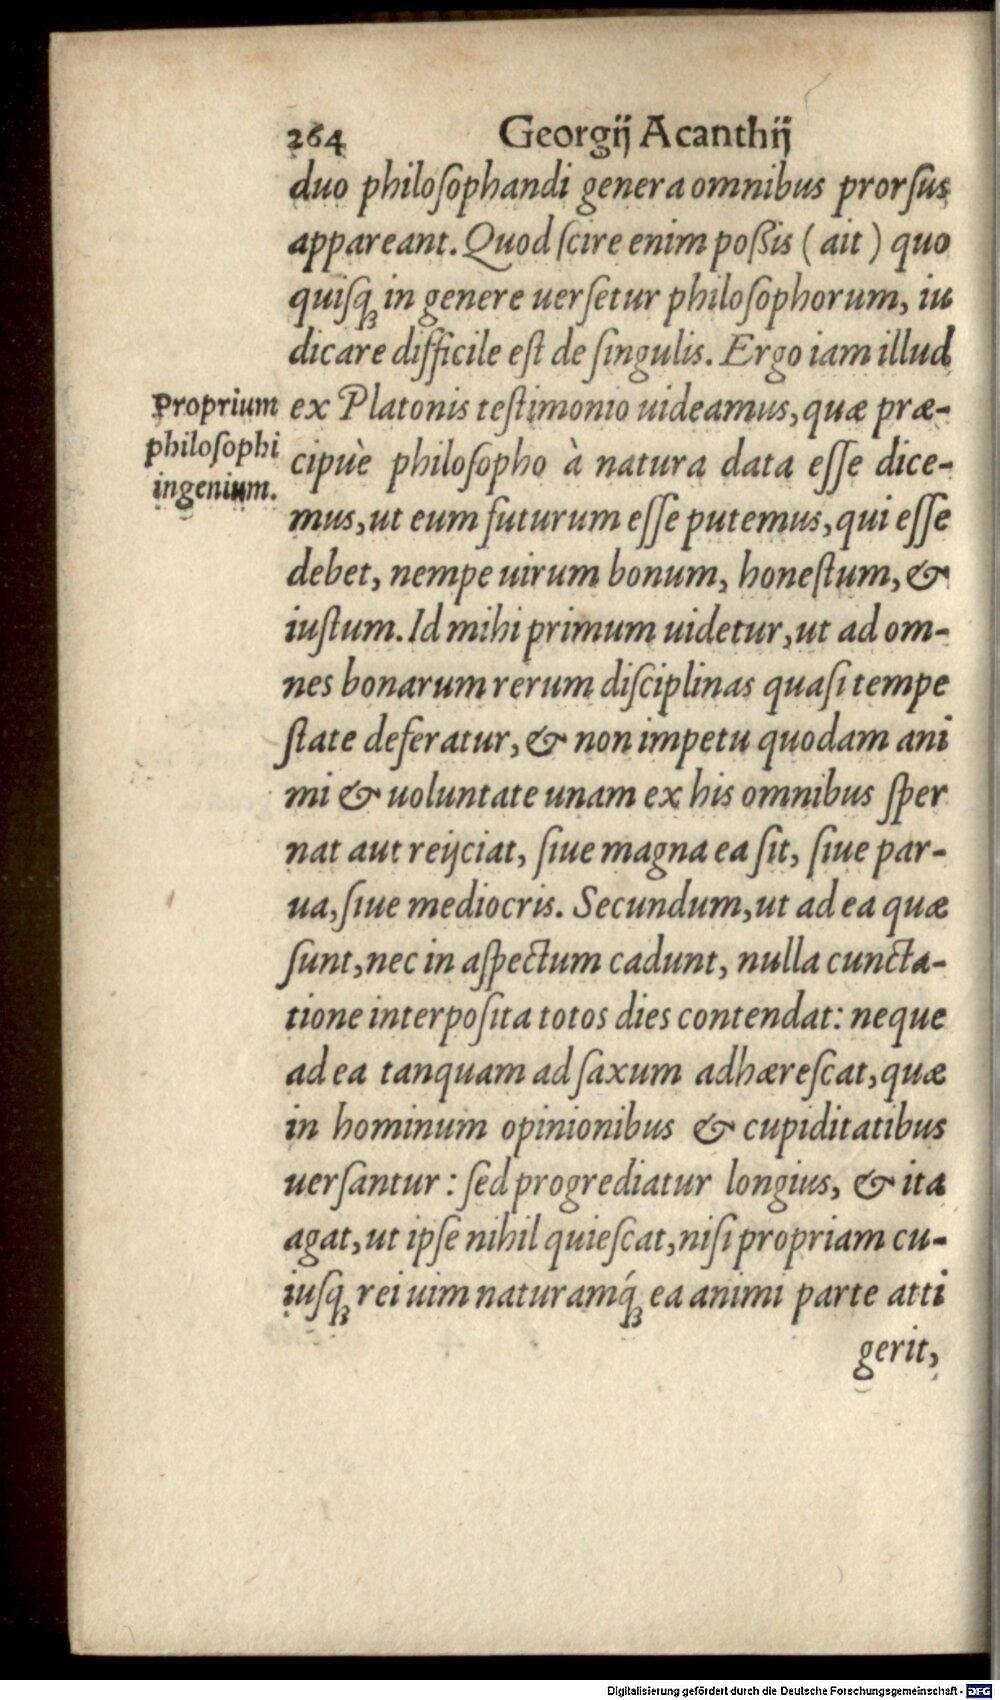 264 Georgij Acanthij
duo philoſophandi genera omnibus prorſus
appareant. Quod ſcire enim poßis ( ait ) quo
quiſq́; in genere uerſetur philoſophorum, iu
dicare difficile eſt de ſingulis. Ergo iam illud
Proprium
philoſophi
ingenium.
ex Platonis teſtimonio uideamus, quæ præ-
cipuè philoſopho à natura data eſſe dice-
mus, ut eum futurum eſſe putemus, qui eſſe
debet, nempe uirum bonum, honeſtum, &
iuſtum. Id mihi primum uidetur, ut ad om-
nes bonarum rerum diſciplinas quaſi tempe
ſtate deferatur, & non impetu quodam ani
mi & uoluntate unam ex his omnibus ſper
nat aut reijciat, ſiue magna ea ſit, ſiue par-
ua, ſiue mediocris. Secundum, ut ad ea quæ
ſunt, nec in aſpectum cadunt, nulla cuncta-
tione interpoſita totos dies contendat: neque
ad ea tanquam ad ſaxum adhæreſcat, quæ
in hominum opinionibus & cupiditatibus
uerſantur : ſed progrediatur longius, & ita
agat, ut ipſe nihil quieſcat, niſi propriam cu-
iuſq; rei uim naturamq́; ea animi parte atti
gerit,
Digitalisierung gefördert durch die Deutsche Forschungsgemeinschaft - DFG